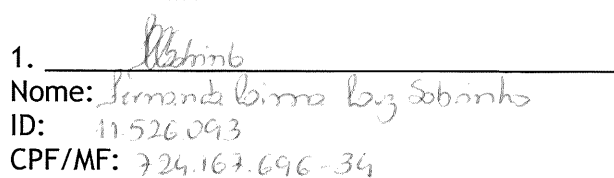 1.
Nome: Fernanda Lima Luz Sobrinho
ID: 11.526.093
CPF/MF: 724.167.696-34